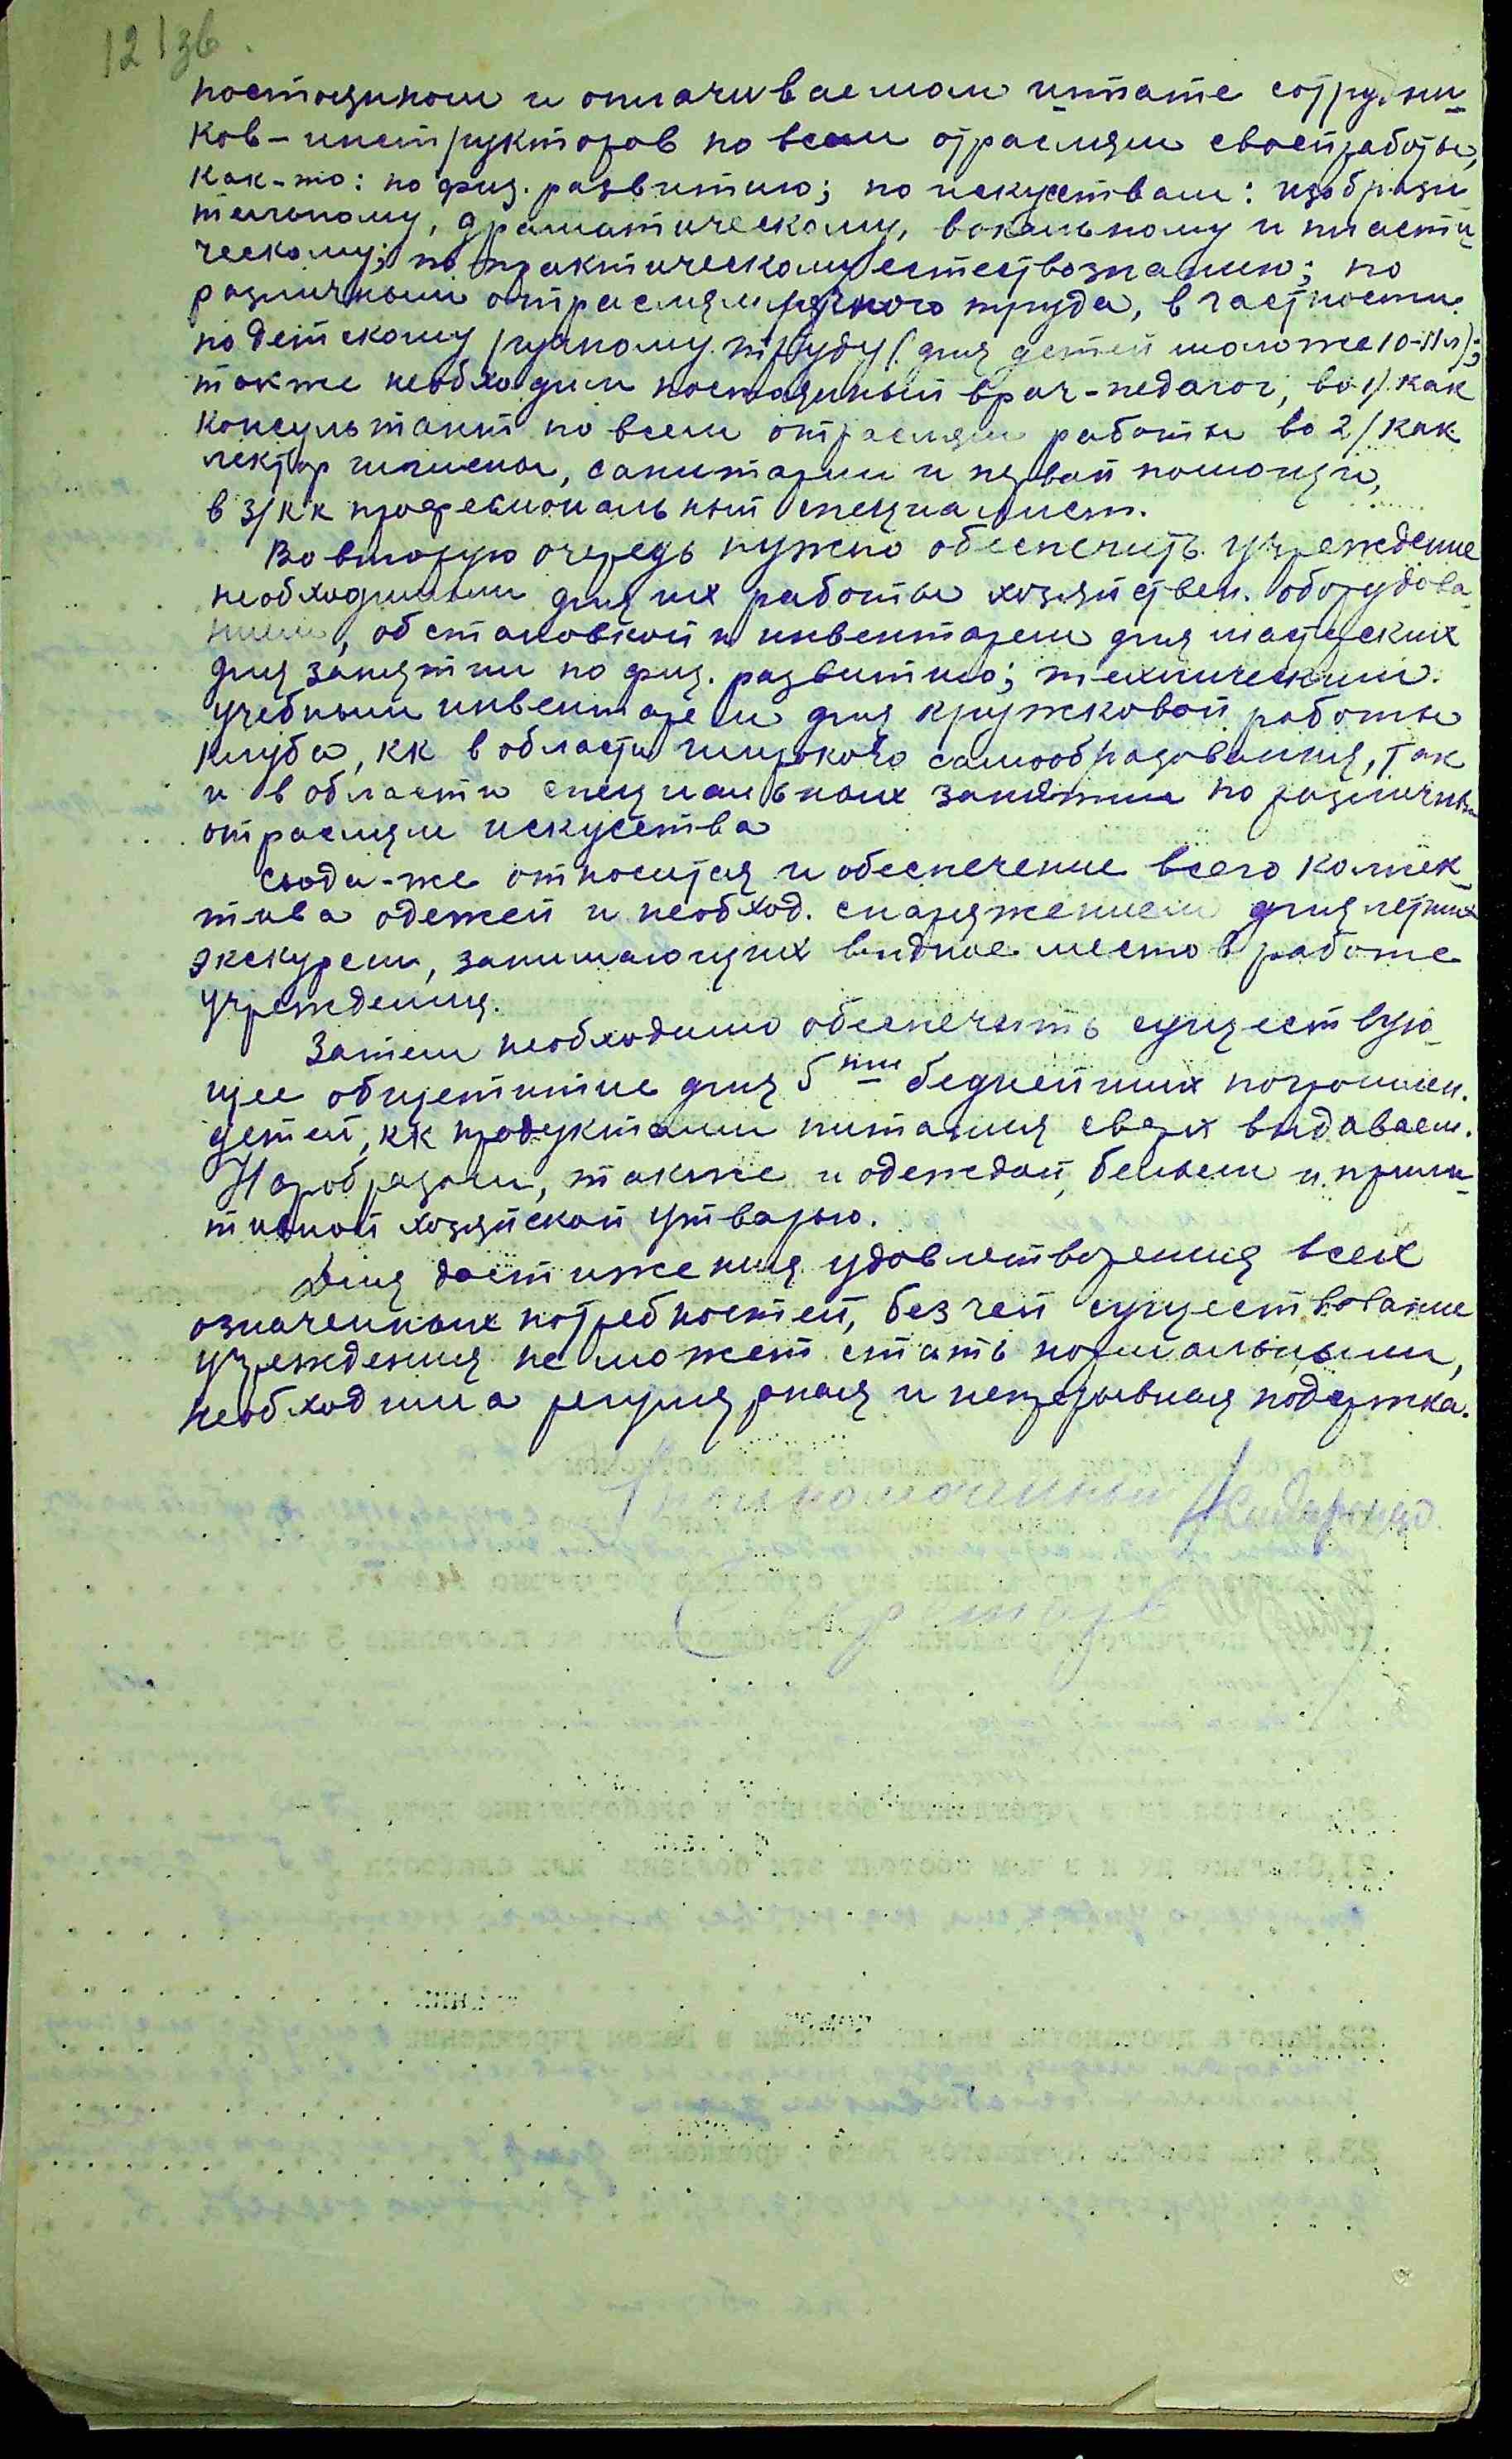 12 | зв.
постоянном и оплачиваемом штате сотрудни-
ков-инструкторов по всем отраслям своей работы,
как-то: по физ. развитию; по искусствам: изобрази
тельному, драматическому, вокальному и пласти-
ческому; по практическому естествознанию; по
различным отраслям ручного труда, в частности
по детскому ручному труду (для детей моложе 10-11 л);
также необходим постоянный врач-педагог, во 1/ как
консультант по всем отраслям работы во 2/ как
лектор гигиены, санитарии и первой помощи,
в 3/ кк професиональный специалист.
Во вторую очередь нужно обеспечить учреждение
необходимым для их работы хозяйствен. оборудова-
нием, обстановкой и инвентарем для мастерских
для занятий по физ. развитию; техническим.
учебным инвентарем для кружковой работы
клуба, кк в области широкого самообразования, так
и в области специальных занятий по различным
отраслям искусства
Сюда-же относится и обеспечение всего коллек-
тива одежей и необход. снаряжением для летних
экскурсий, занимающих видное место в работе
учреждения.
Затем необходимо обеспечить существую-
щее общежитие для 5ти беднейших погромлен.
детей, кк продуктами питания сверх выдаваем.
Наробразом, также и одеждой, бельем и прими-
тивной хозяйской утварью.
Для достижения удовлетворения всех
означенных потребностей, без чего существование
учреждения не может стать нормальным,
необходима регулярная и непрерывная подержка.
Уполномоченный
Секретарь